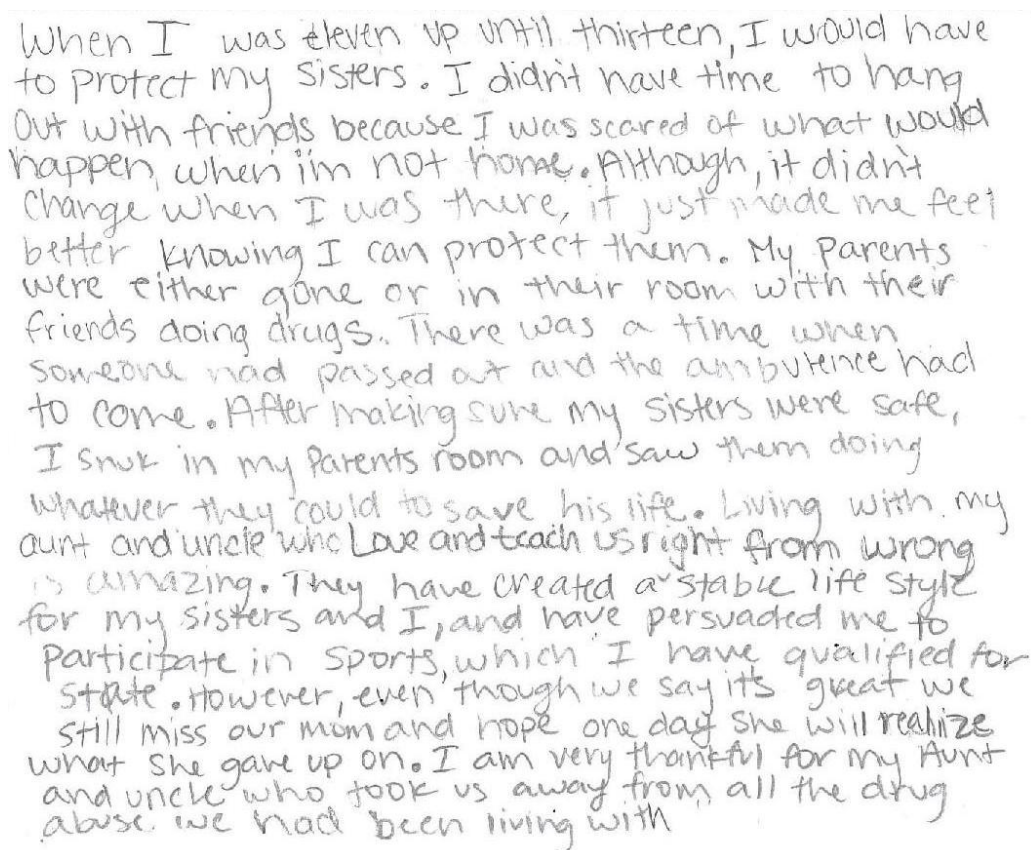 When I was eleven up until thirteen, I would have
to protect my sisters. I didn't have time to hang
out with friends because I was scared of what would
happen when i'm not home. Although, it didn't
change when I was there, it just made me feel
better knowing I can protect them. My parents
were either gone or in their room with their
friends doing drugs. There was a time when
someone had passed out and the ambulence had
to come. After making sure my sisters were safe,
I snuk in my parents room and saw them doing
whatever they could to save his life. Living with my
aunt and uncle who Love and teach us right from wrong
is amazing. They have created a stable life style
for my sisters and I, and have persuaded me to
participate in sports, which I have qualified for
state. However, even though we say it's great we
still miss our mom and hope one day she will realize
what she gave up on. I am very thankful for my Aunt
and uncle who took us away from all the drug
abuse we had been living with